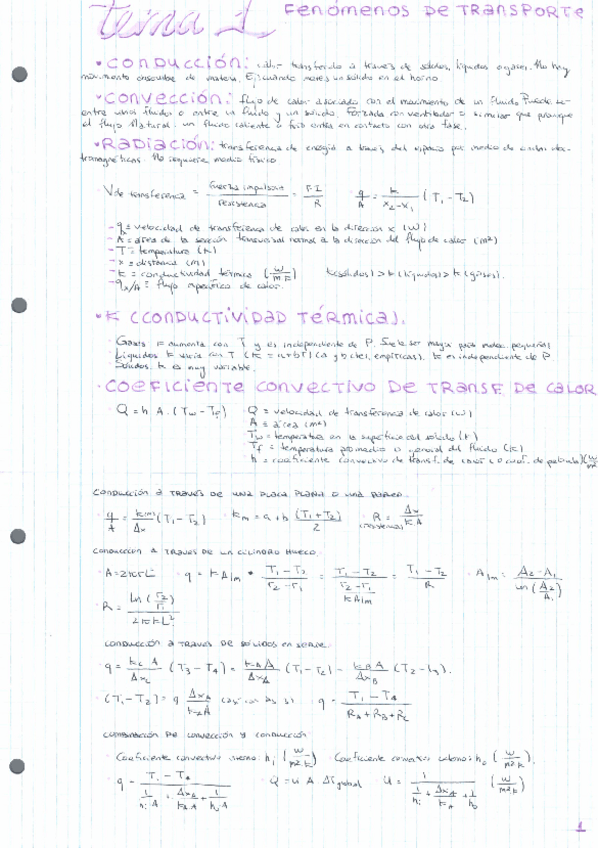 Tema 1 FENÓMENOS DE TRANSPORTE
• CONDUCCIÓN: calor transferido a través de sólidos, líquidos o gases. No hay
movimiento observable de materia. Ej: cuando metes un sólido en el horno.
• CONVECCIÓN: flujo de calor asociado con el movimiento de un fluido. Puede ser
entre varios fluidos o entre un fluido y un sólido. Forzada con ventilador o similar que provoque
el flujo. Natural: un fluido caliente o frío entra en contacto con otra fase.
• RADIACIÓN: transferencia de energía a través del espacio por medio de ondas elec-
tromagnéticas. No requiere medio físico
· V de transferencia = Fuerza impulsora / resistencia = F.I / R · q/A = k / (x2 - x1) (T1 - T2)
- qx = velocidad de transferencia de calor en la dirección x (W)
- A = área de la sección transversal normal a la dirección del flujo de calor (m²)
- T = temperatura (K)
- x = distancia (m)
- k = conductividad térmica (W / m K) k(sólidos) > k(líquidos) > k(gases).
- qx/A = flujo específico de calor.
• K (CONDUCTIVIDAD TÉRMICA).
· Gases k aumenta con T y es independiente de P. Suele ser mayor para molec. pequeñas
· Líquidos k varía con T (k = a + bT) (a y b ctes. empíricas). k es independiente de P
· Sólidos. k es muy variable.
• COEFICIENTE CONVECTIVO DE TRANSF. DE CALOR
· Q = h A · (Tw - Tf) Q = velocidad de transferencia de calor (W)
A = área (m²)
Tw = temperatura en la superficie del sólido (K)
Tf = temperatura promedio o general del fluido (K)
h = coeficiente convectivo de transf. de calor (o coef. de película)
CONDUCCIÓN A TRAVÉS DE UNA PLACA PLANA O UNA PARED.
· q/A = km / Δx (T1 - T2) · km = a + b (T1 + T2) / 2 · R (resistencia) = Δx / kA
CONDUCCIÓN A TRAVÉS DE UN CILINDRO HUECO.
· A = 2πrL · q = k Alm · (T1 - T2) / (r2 - r1) = (T1 - T2) / ((r2 - r1) / k Alm) = (T1 - T2) / R · Alm = (A2 - A1) / ln(A2 / A1)
· R = ln(r2 / r1) / 2πkL
CONDUCCIÓN A TRAVÉS DE SÓLIDOS EN SERIE.
· q = kc A / Δxc (T3 - T4) = kA A / ΔxA (T1 - T2) = kB A / ΔxB (T2 - T3).
· (T1 - T2) = q ΔxA / kA A · q = (T1 - T4) / (RA + RB + RC)
COMBINACIÓN DE CONVECCIÓN Y CONDUCCIÓN
· Coeficiente convectivo interno: hi (W / m² K) · Coeficiente convectivo externo: ho (W / m² K).
· q = (T1 - T4) / (1 / hi A + ΔxA / kA A + 1 / ho A) · Q = U A ΔT global U = 1 / (1 / hi + ΔxA / kA + 1 / ho) (W / m² K)
1